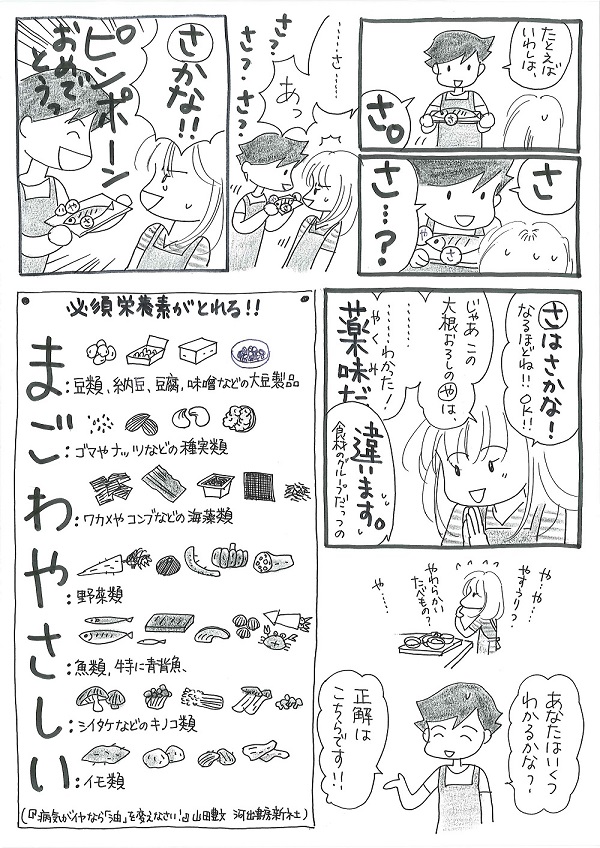 たとえば
いわしは、
さ。
さ
さ…?
や
さ
……さ……
あっ
さ?
さ?さ?
さかな!!
ピンポーン
おめで
とうっ
や
さ
さはさかな!
なるほどね!!OK!!
じゃあこの
大根おろしのやは、
………わかった!
薬味だ
やくみ
違います。
食材のグループだっつの
や…や…
やすうり?
やわらかい
たべもの?
や…
あなたはいくつ
わかるかな?
正解は
こちらです!!
必須栄養素がとれる!!
ま:豆類、納豆、豆腐、味噌などの大豆製品
ご:ゴマやナッツなどの種実類
わ:ワカメやコンブなどの海藻類
や:野菜類
さ:魚類、特に青背魚、
し:シイタケなどのキノコ類
い:イモ類
(『病気がイヤなら「油」を変えなさい!』山田豊文 河出書房新社)